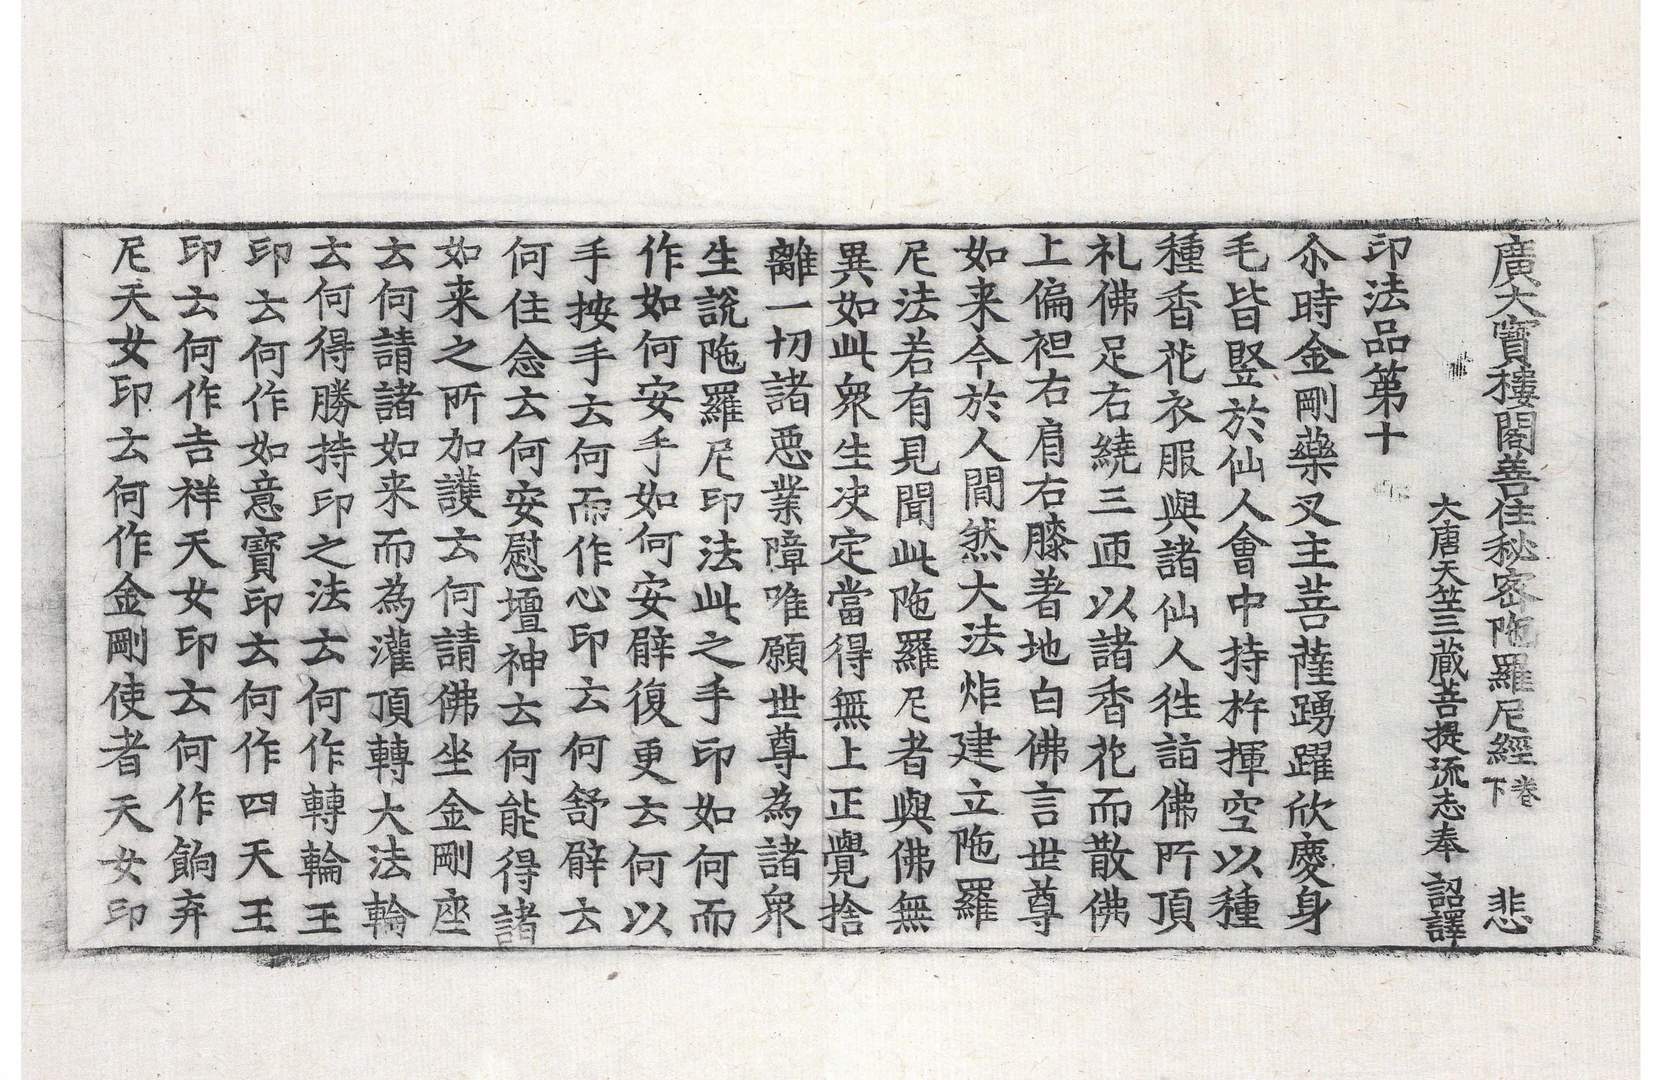 廣大寶樓閣善住秘密陁羅尼經卷下 悲
大唐天竺三藏菩提流志奉 詔譯
印法品第十
尒時金剛藥叉主菩薩踴躍欣慶身
毛皆竪於仙人會中持杵揮空以種
種香花衣服與諸仙人徃詣佛所頂
礼佛足右繞三匝以諸香花而散佛
上偏袒右肩右膝著地白佛言世尊
如来今於人間然大法炬建立陁羅
尼法若有見聞此陁羅尼者與佛無
異如此衆生决定當得無上正覺捨
離一切諸惡業障唯願世尊為諸衆
生說陁羅尼印法此之手印如何而
作如何安手如何安臂復更云何以
手按手云何而作心印云何舒臂云
何住念云何安慰壇神云何能得諸
如来之所加護云何請佛坐金剛座
云何請諸如来而為灌頂轉大法輪
云何得勝持印之法云何作轉輪王
印云何作如意寶印云何作四天王
印云何作吉祥天女印云何作餉弃
尼天女印云何作金剛使者天女印